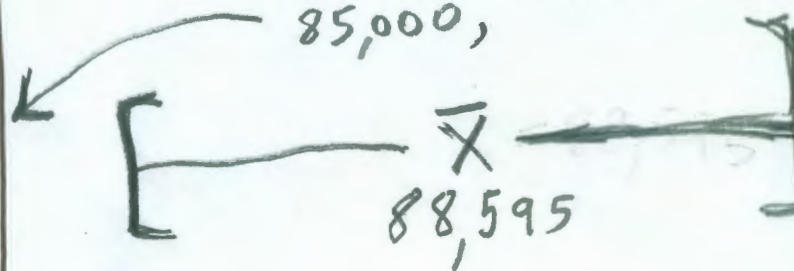 85,000,
[ X̄ ]
88,595